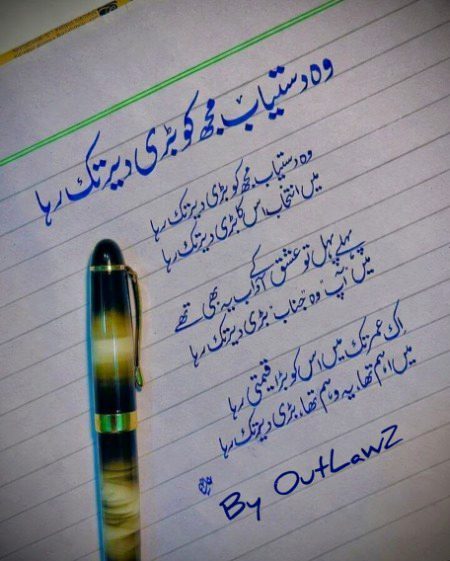 وہ دستیاب مجھ کو بڑی دیر تک رہا
وہ دستیاب مجھ کو بڑی دیر تک رہا
میں انتخاب اس کا بڑی دیر تک رہا
پہلے پہل تو عشق کے آداب یہ بھی تھے
میں "آپ" وہ "جناب" بڑی دیر تک رہا
اک عمر تک میں اس کو بڑا قیمتی رہا
میں اہم تھا، یہ وہم تھا، بڑی دیر تک رہا
By OutLawZ